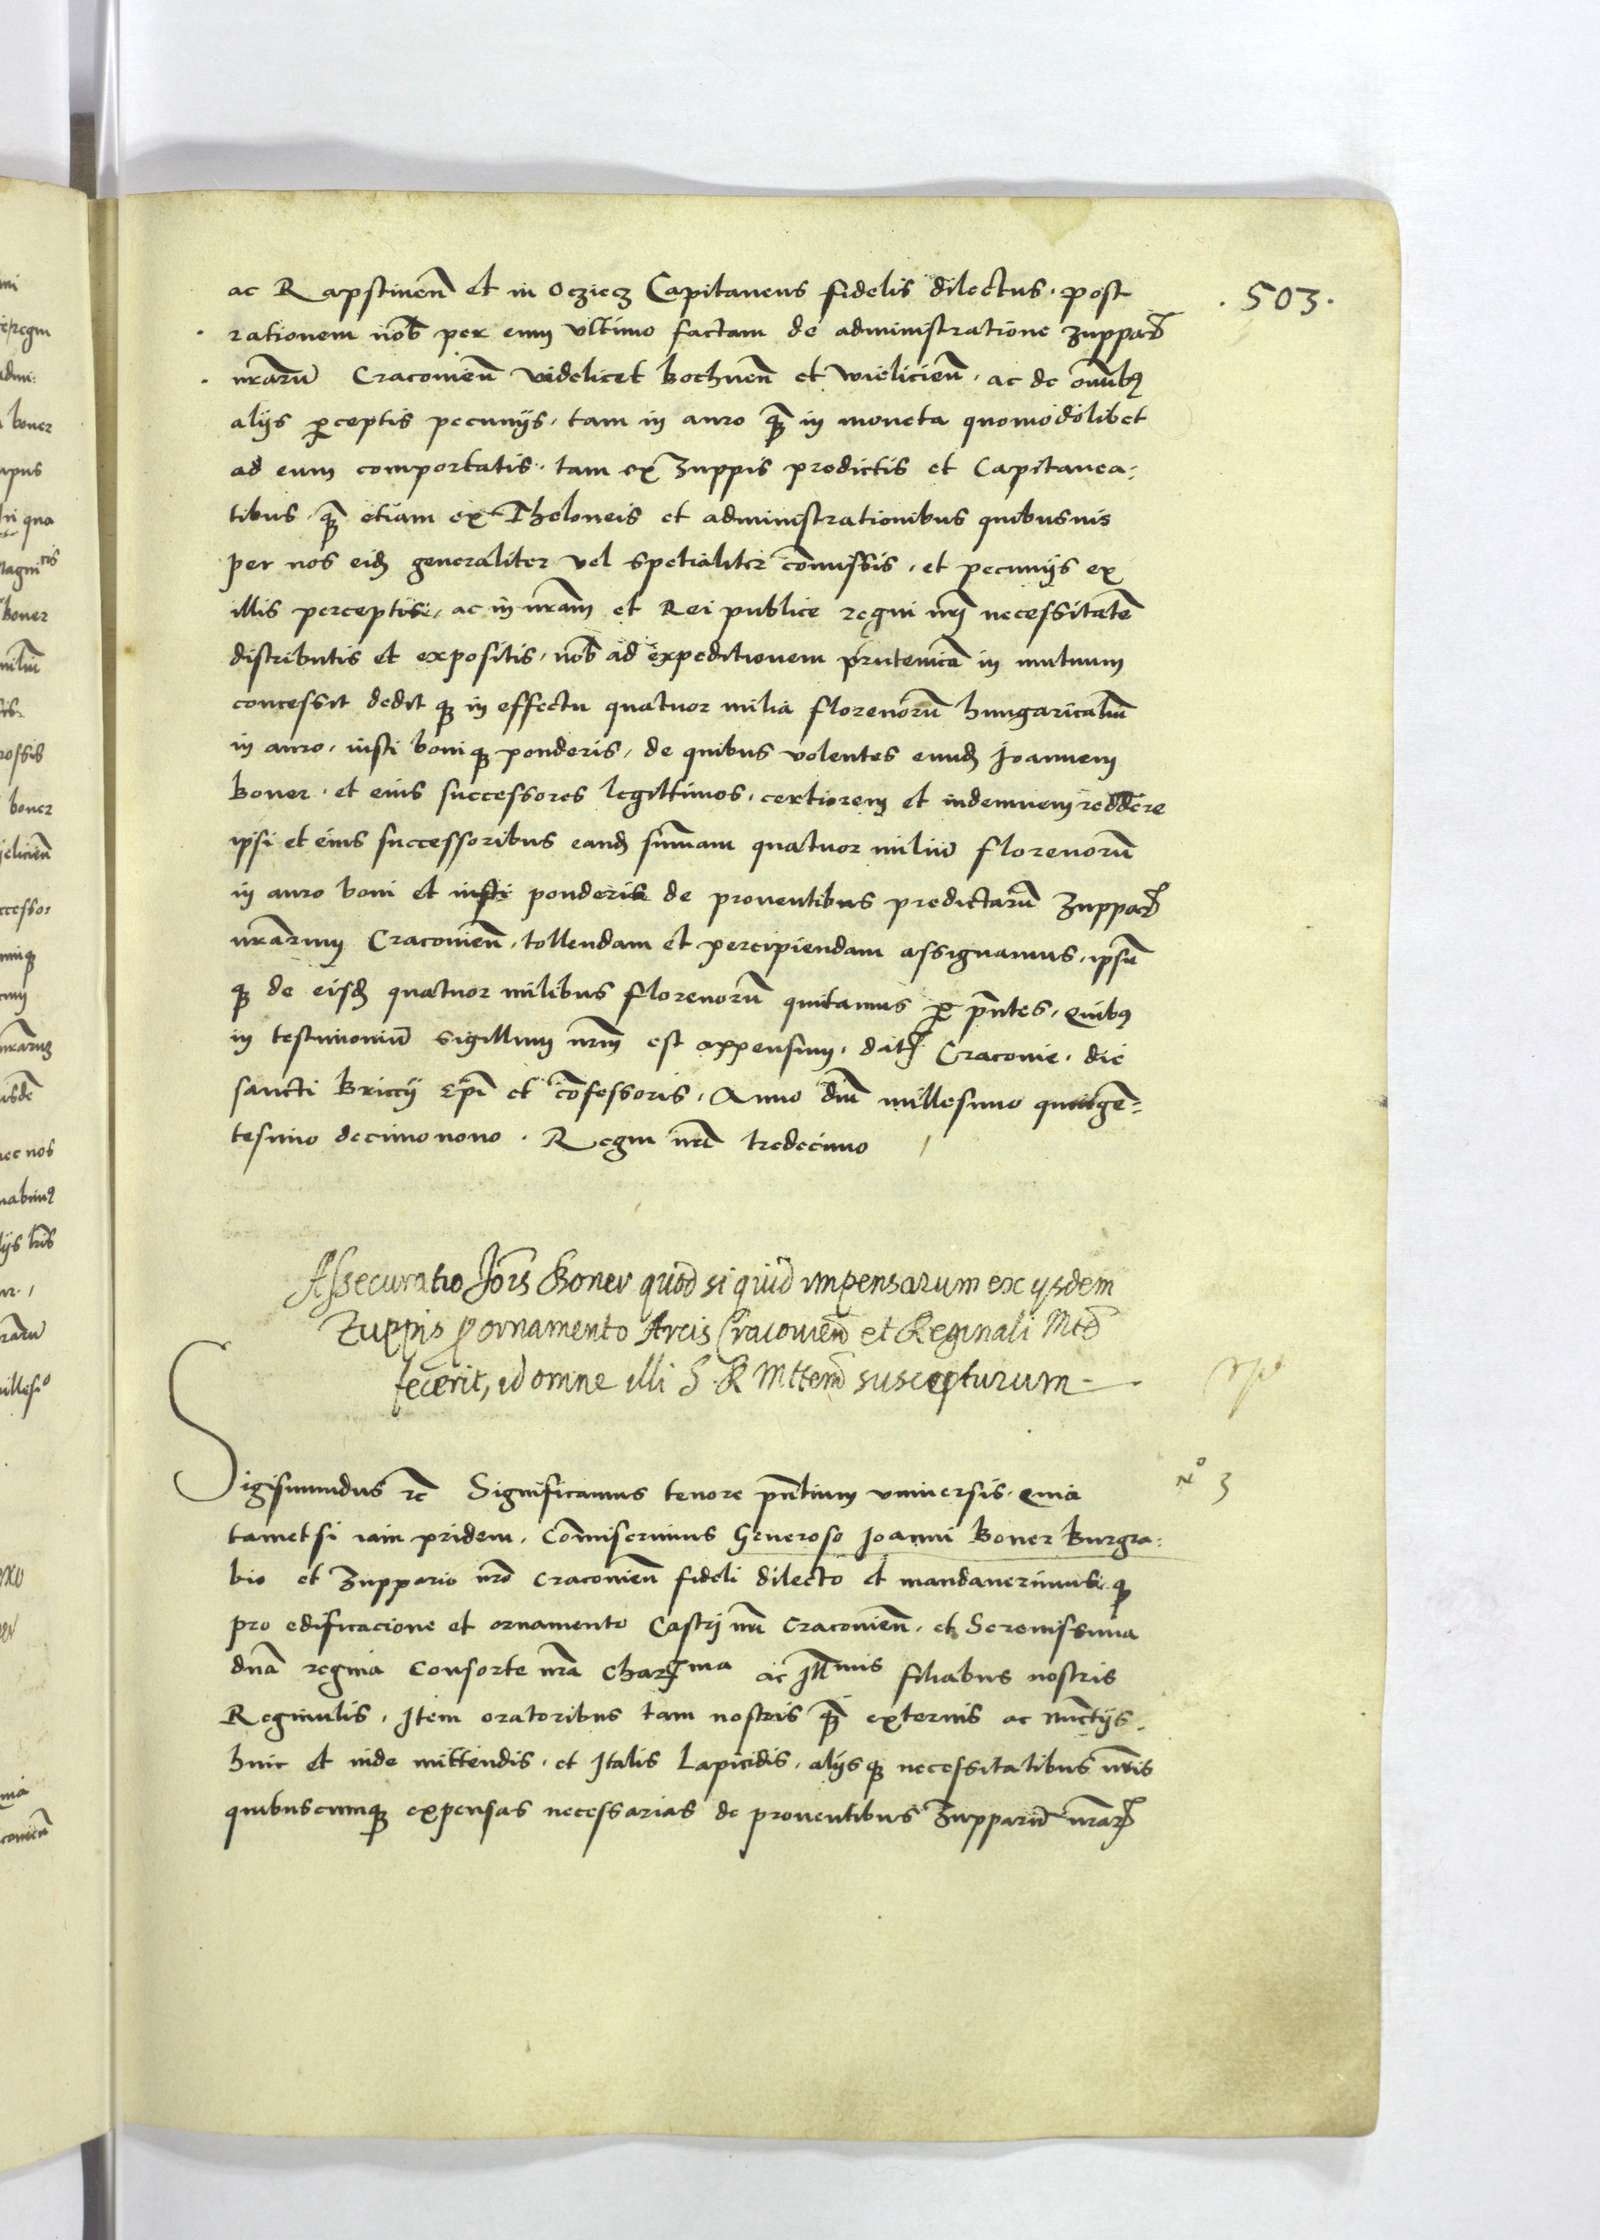 ac Rapstinen̄ et in Ocziecz Capitaneus fidelis dilectus. post
. 503 .
rationem nob̄ per eum ultimo factam de administratione zuppar̄
nr̄arū Cracovien̄ videlicet bochnen̄ et wielicien̄. ac de om̄ibꝰ
alijs ꝑceptis pecunijs. tam in auro qꝫ in moneta quomodolibet
ad eum comportatis. tam ex zuppis predictis et Capitanea:
tibus. qꝫ etiam ex Theloneis et administrationibus quibusuis
per nos eidꝫ generaliter vel spetialiter com̄issis, et pecunijs ex
illis perceptis, ac in nr̄am et Rei publice regni nr̄j necessitatē
distributis et expositis, nob̄ ad expeditionem prutenicā in mutuum
concessit dedit qꝫ in effectu quatuor milia florenorū hungaricaliū
in auro. iusti boniqꝫ ponderis, de quibus volentes eundꝫ Joannem
Boner. et eius successores legittimos, certiorem et indemnem reddere
ipsi et eius successoribus eandꝫ sum̄am quatuor miliū florenorū
in auro boni et iusti ponderis de proventibus predictarū zuppar̄
nr̄arum Cracovien̄. tollendam et percipiendam assignamus, ipsū
qꝫ de eisdꝫ quatuor milibus florenorū quitamus ꝑ pn̄tes, quibꝰ
in testimoniū sigillum nr̄m est appensum. dat̄ Cracovie. die
sancti Briccij Ep̄i et cōfessoris, Anno dn̄i millesimo quinge=
tesimo decimonono. Regni nr̄i tredecimo
Assecuratio Joīs Boner quod si quid impensarum ex ijsdem
Zuppis ꝓ ornamento Arcis Cracovien̄ et Reginali Mtē
fecerit, id omne illi S. R. Mttem̄ suscepturum
Sigismundus ꝛc Significamus tenore pn̄tium vniversis. quia
Nº 3
tametsi iam pridem. Com̄iserimus Generoso Joanni Boner Burgra:
bio et zuppario nr̄o Cracovien̄ fideli dilecto et mandaverimus. qꝫ
pro edificacione et ornamento Castrj nr̄i Cracovien̄. et Serenissima
dn̄a regina Consorte nr̄a Charma ac Jll̄mis filiabus nostris
Reginulis. Item oratoribus tam nostris qꝫ externis ac nūctijs.
huic et inde mittendis. et Italis Lapicidis. alijsqꝫ necessitatibus nr̄is
quibuscumqꝫ expensas necessarias de proventibus zupparū nr̄ar̄